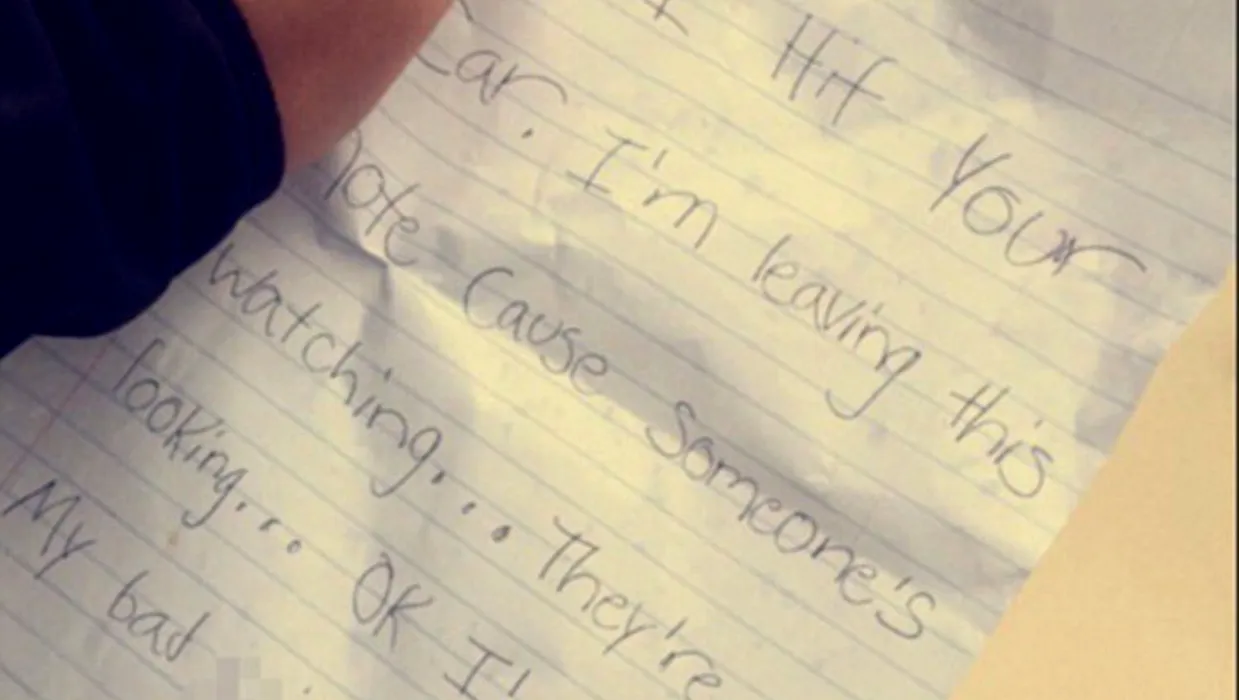 I Hit Your
Car. I'm leaving this
Note Cause Someone's
watching... They're
looking... OK I'
My bad